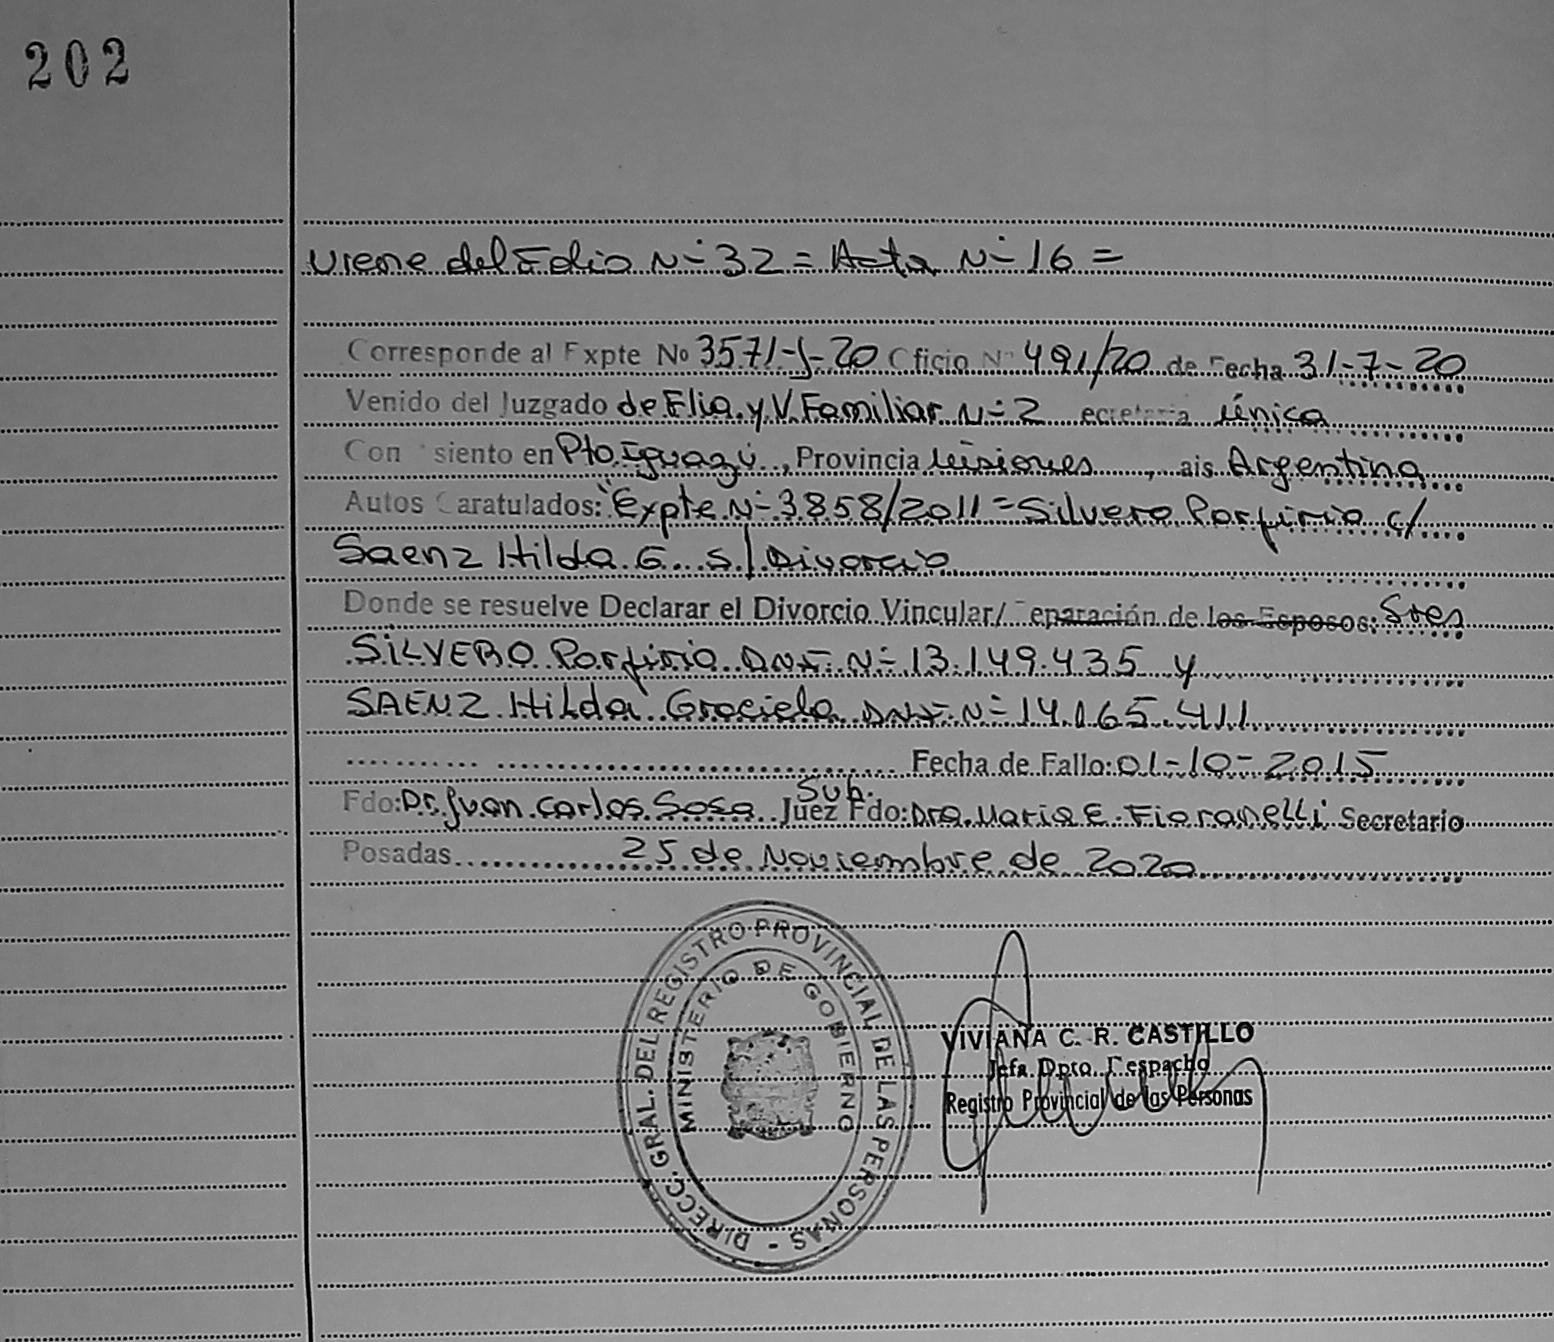 202
Viene del Folio Nº 32 = Acta Nº 16 =
Corresponde al Expte Nº 3571-J-20 Oficio Nº 491/20 de Fecha 31-7-20
Venido del Juzgado de Flia. y V. Familiar Nº 2 ecretaria única
Con siento en Pto Iguazú, Provincia Misiones, ais. Argentina
Autos Caratulados: "Expte Nº 3858/2011 = Silvero Porfirio c/
Saenz Hilda G. s/ Divorcio
Donde se resuelve Declarar el Divorcio Vincular/ eparación de los Esposos: Sres
SILVERO Porfirio DNI Nº 13.149.435 y
SAENZ Hilda Graciela DNI Nº 14.165.411
Fecha de Fallo: 01-10-2015
Sub.
Fdo: Dr. Juan Carlos Sosa Juez Fdo: Dra. Maria E. Fioranelli Secretario
Posadas 25 de Noviembre de 2020
DIRECC. GRAL. DEL REGISTRO PROVINCIAL DE LAS PERSONAS -
MINISTERIO DE GOBIERNO
VIVIANA C. R. CASTILLO
Jefa Dpto. Despacho
Registro Provincial de las Personas